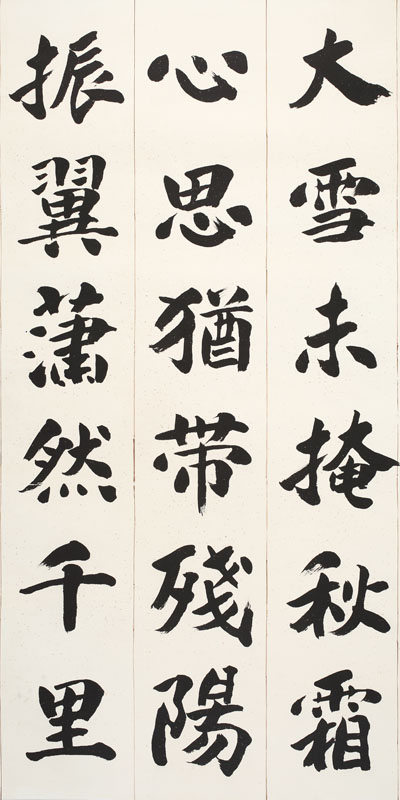 大雪未掩秋霜
心思猶带殘陽
振翼蕭然千里